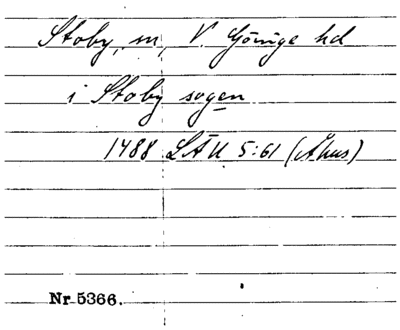 Stoby, sn, V Göinge hd
i Stoby sogen
1488 LÄU 5:61 (Åhus)
Nr 5366.